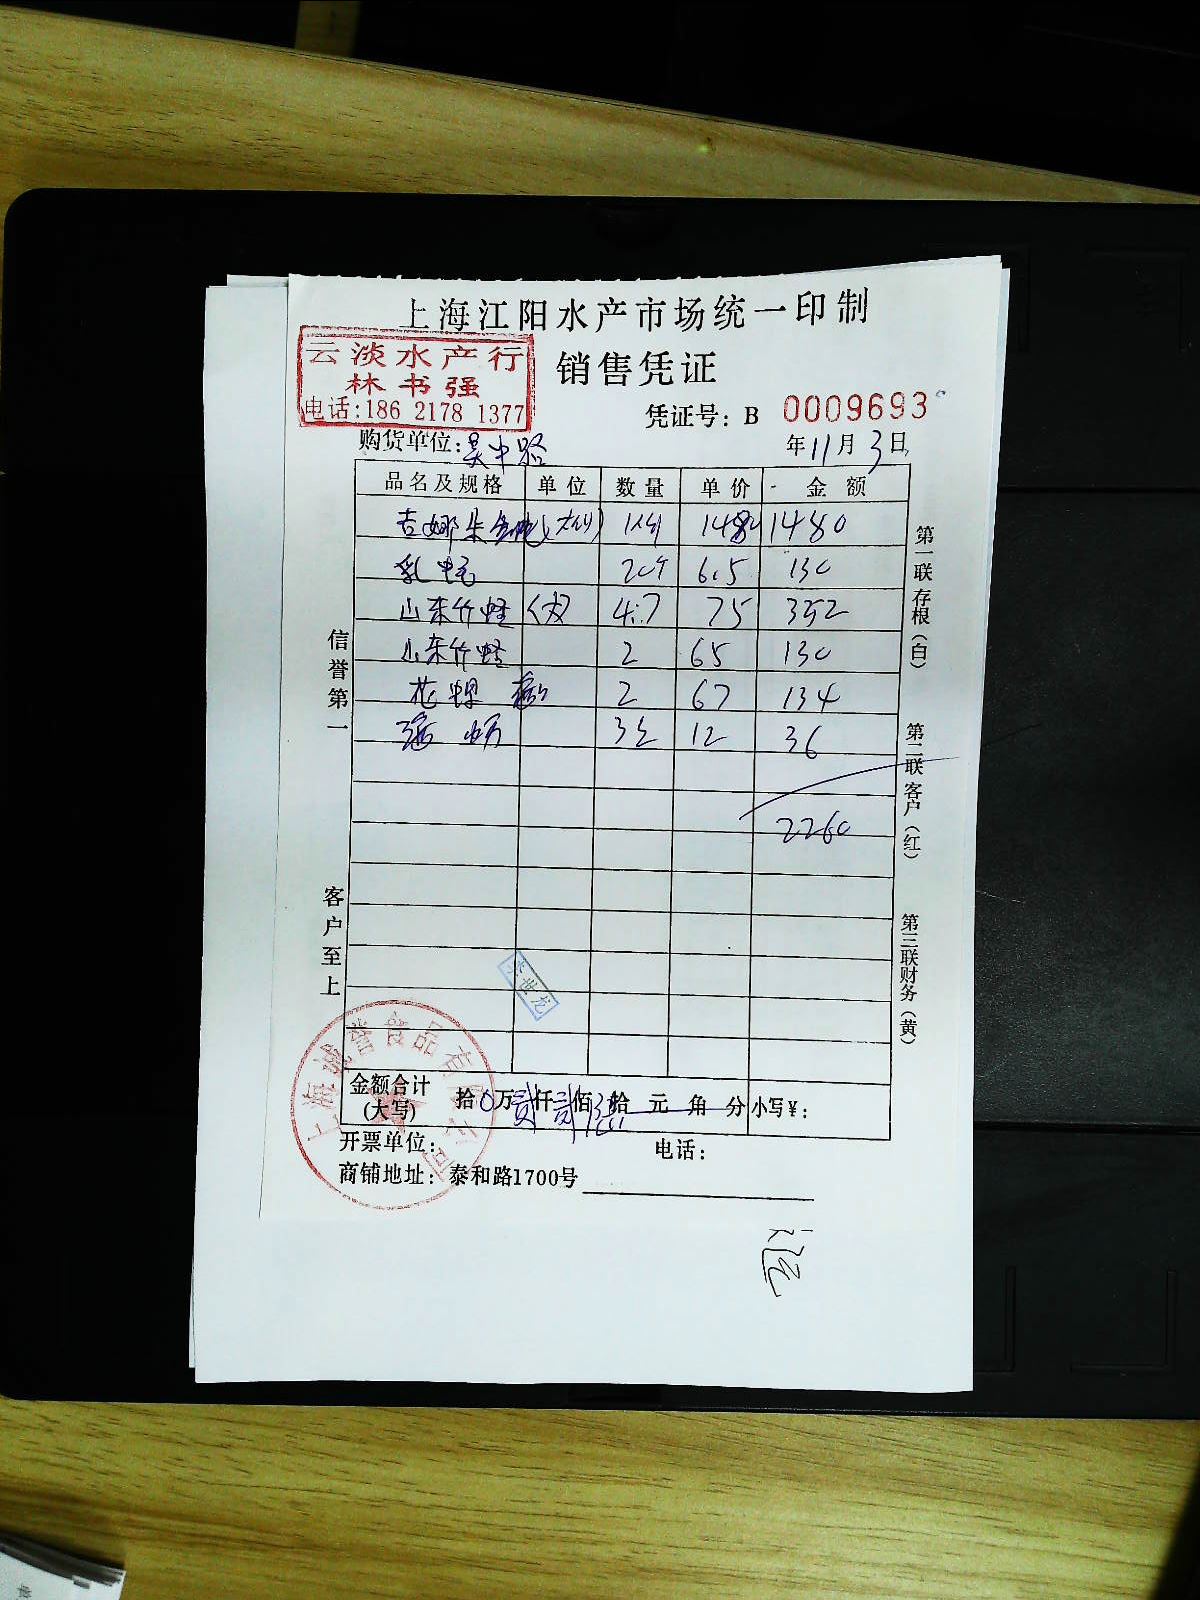 上海江阳水产市场统一印制
云淡水产行
林书强
电话:186 2178 1377
销售凭证
凭证号: B 0009693
购货单位: 吴中路
年 11 月 3 日
品名及规格 单位 数量 单价 金额
吉娜朱 1480 1480
乳 20个 6.5 130
山东竹蛏 (大) 4.7 75 352
山东竹蛏 2 65 130
花螺 2 67 134
12 36
2260
信誉第一
客户至上
第一联存根(白)
第二联客户(红)
第三联财务(黄)
李世龙
金额合计(大写) 拾0万贰仟贰佰 拾 元 角 分 小写¥:
开票单位: 电话:
商铺地址: 泰和路1700号